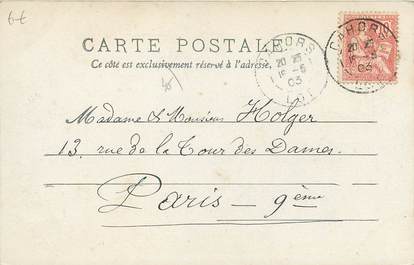 CARTE POSTALE
Ce côté est exclusivement réservé à l'adresse.
CAHORS
20 25
16 -5
03
LOT
CAHORS
20 25
16 -5
03
LOT
Madame & Monsieur Holger
13, rue de la Tour des Dames.
Paris - 9ème